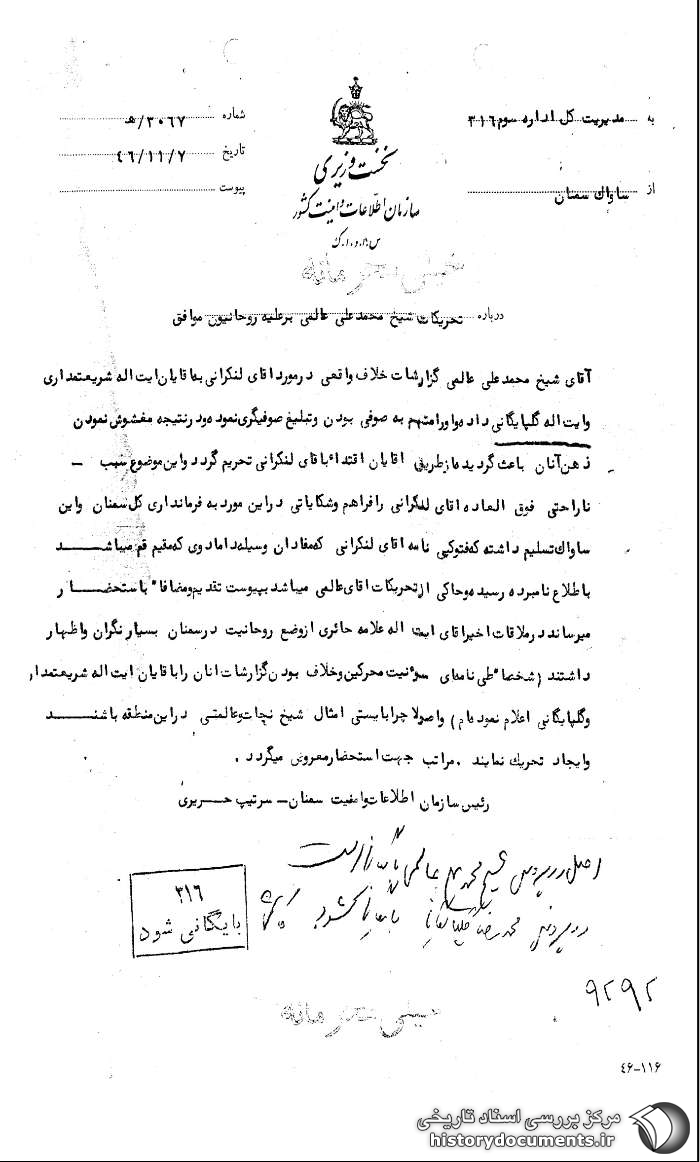 به مدیریت کل اداره سوم ۳۱۶
از ساواك سمنان
نخست وزیری
سازمان اطلاعات و امنیت کشور
س.ا.و.ا.ک
شماره ۳۰۶۷/هـ
تاریخ ٤٦/۱۱/۷
پیوست
خیلی محرمانه
درباره تحریکات شیخ محمد علی عالمی برعلیه روحانیون موافق
آقای شیخ محمد علی عالمی گزارشات خلاف واقعی در مورد اقای لنکرانی به اقایان ایت اله شریعتمداری
وایت اله گلپایگانی داده و اورا متهم به صوفی بودن و تبلیغ صوفیگری نموده و در نتیجه مغشوش نمودن
ذهن آنان باعث گردیده از طریق اقایان اقتدا باقای لنکرانی تحریم گردد و این موضوع سبب –
ناراحتی فوق العاده اقای لنکرانی را فراهم و شکایاتی در این مورد به فرمانداری کل سمنان و این
ساواك تسلیم داشته که فتوکپی نامه اقای لنکرانی که مفاد ان وسیله دامادوی که مقیم قم میباشد
باطلاع نامبرده رسیده و حاکی از تحریکات اقای عالمی میباشد بپیوست تقدیم و مضافا" باستحضار
میرساند در ملاقات اخیر اقای ایت اله علامه حائری از وضع روحانیت در سمنان بسیار نگران و اظهار
داشتند (شخصا" طی نامه ای سوئنیت محرکین و خلاف بودن گزارشات انان را باقایان ایت اله شریعتمدار
وگلپایگانی اعلام نموده ام) واصولا چرا بایستی امثال شیخ نجات و عالمتی در این منطقه باشند
وایجاد تحریك نمایند . مراتب جهت استحضار معروض میگردد .
رئیس سازمان اطلاعات وامنیت سمنان – سرتیپ حریری
اصل در پرونده شیخ محمد علی عالمی بایگانی است
در پرونده محمد رضا گلپایگانی بایگانی شود
۳۱۶
بایگانی شود
۹۲۹۲
خیلی محرمانه
٤۶-۱۱۶
مرکز بررسی اسناد تاریخی
historydocuments.ir